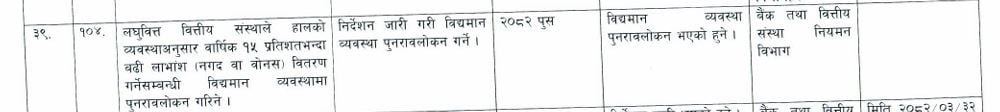 ३९. १०४. लघुवित्त वित्तीय संस्थाले हालको निर्देशन जारी गरी विद्यमान २०८२ पुस विद्यमान व्यवस्था बैंक तथा वित्तीय
व्यवस्थाअनुसार वार्षिक १५ प्रतिशतभन्दा व्यवस्था पुनरावलोकन गर्ने । पुनरावलोकन भएको हुने । संस्था नियमन
बढी लाभांश (नगद वा वोनस) वितरण विभाग
गर्नेसम्बन्धी विद्यमान व्यवस्थामा
पुनरावलोकन गरिने ।
बैंक तथा वित्तीय मिति २०८२/०३/३२